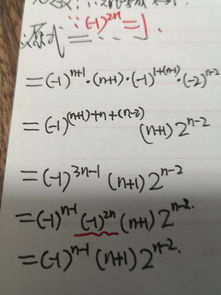 ∵(-1)^{2n}=1.
原式=……
=(-1)^{n+1}·(n+1)·(-1)^{1+(n+1)}·(-2)^{n-2}
=(-1)^{(n+1)+n+(n-2)}(n+1)2^{n-2}
=(-1)^{3n-1}(n+1)2^{n-2}
=(-1)^{n-1}(-1)^{2n}(n+1)2^{n-2}.
=(-1)^{n-1}(n+1)2^{n-2}.